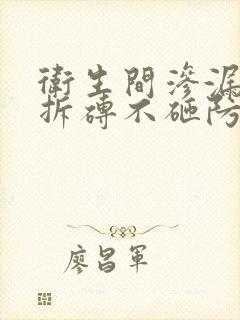 衛生間滲漏
拆磚不砸防
廖昌軍